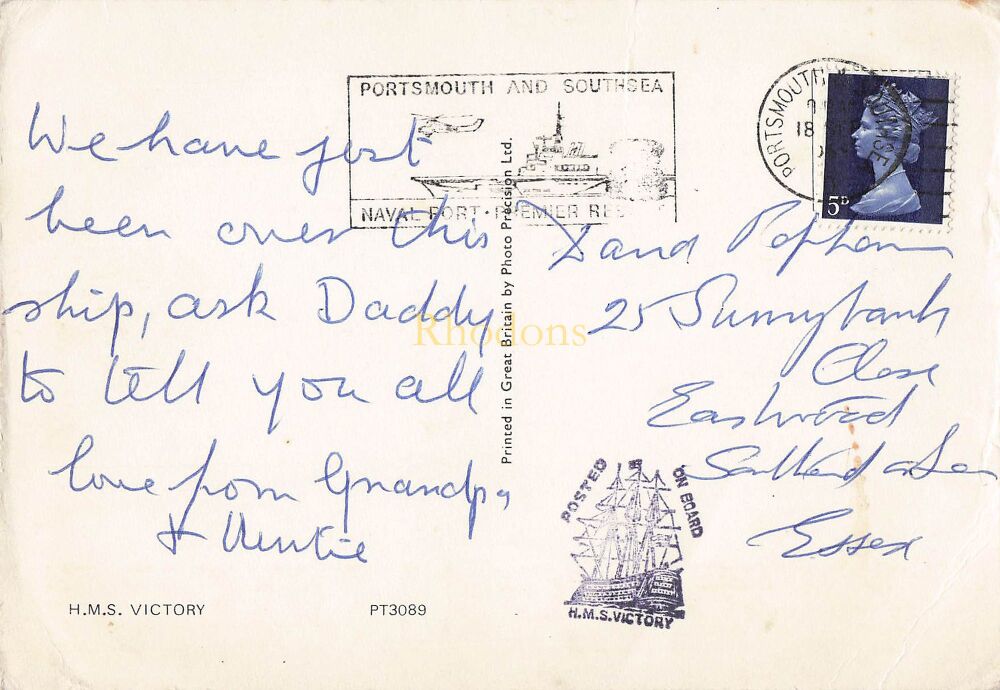 PORTSMOUTH AND SOUTHSEA
NAVAL PORT · PREMIER RES
PORTSMOUTH
18
5D
We have just
been over this
ship, ask Daddy
to tell you all
love from Grandpa
+ Auntie
H.M.S. VICTORY
PT3089
Printed in Great Britain by Photo Precision Ltd.
Rhodons
Popham
25 Sunnybank
Close
Eastwood
Southend on Sea
Essex
POSTED ON BOARD
H.M.S. VICTORY